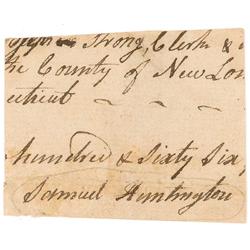 Strong, Clerk &
the County of New Lon
ecticut
hundred & Sixty Six
Samuel Huntington